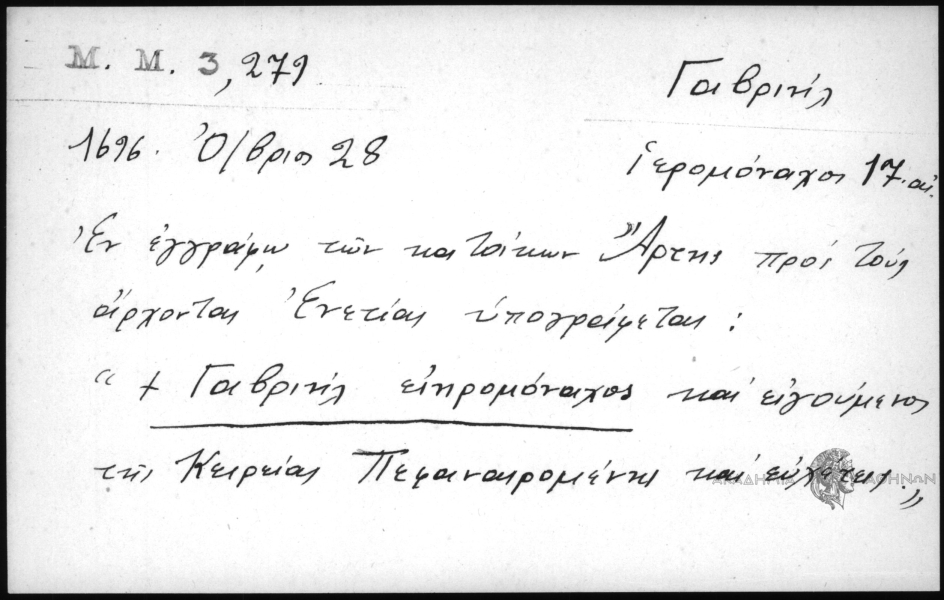 Μ. Μ. 3, 279
Γαβριήλ
1696. Ὀ/βριος 28
ἱερομόναχος 17. αἰ.
Ἐν ἐγγράφῳ τῶν κατοίκων Ἄρτης πρὸς τοὺς
ἄρχοντας Ἐνετίας ὑπογράφεται:
"+ Γαβριήλ εἰηρομόναχος καὶ εἰγούμενος
τῆς Κειρείας Πεφαναιρομένης καὶ εὐχέτεις."
ΑΚΑΔΗΜΙΑ ΑΘΗΝΩΝ